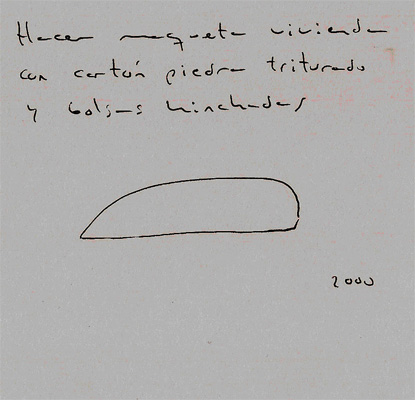 Hacer maqueta vivienda
con cartón piedra triturado
y bolsas hinchadas
2000